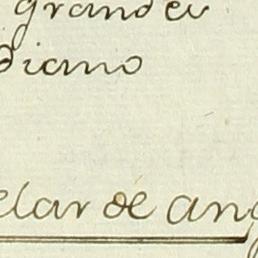 grandes
diano
elar de ang